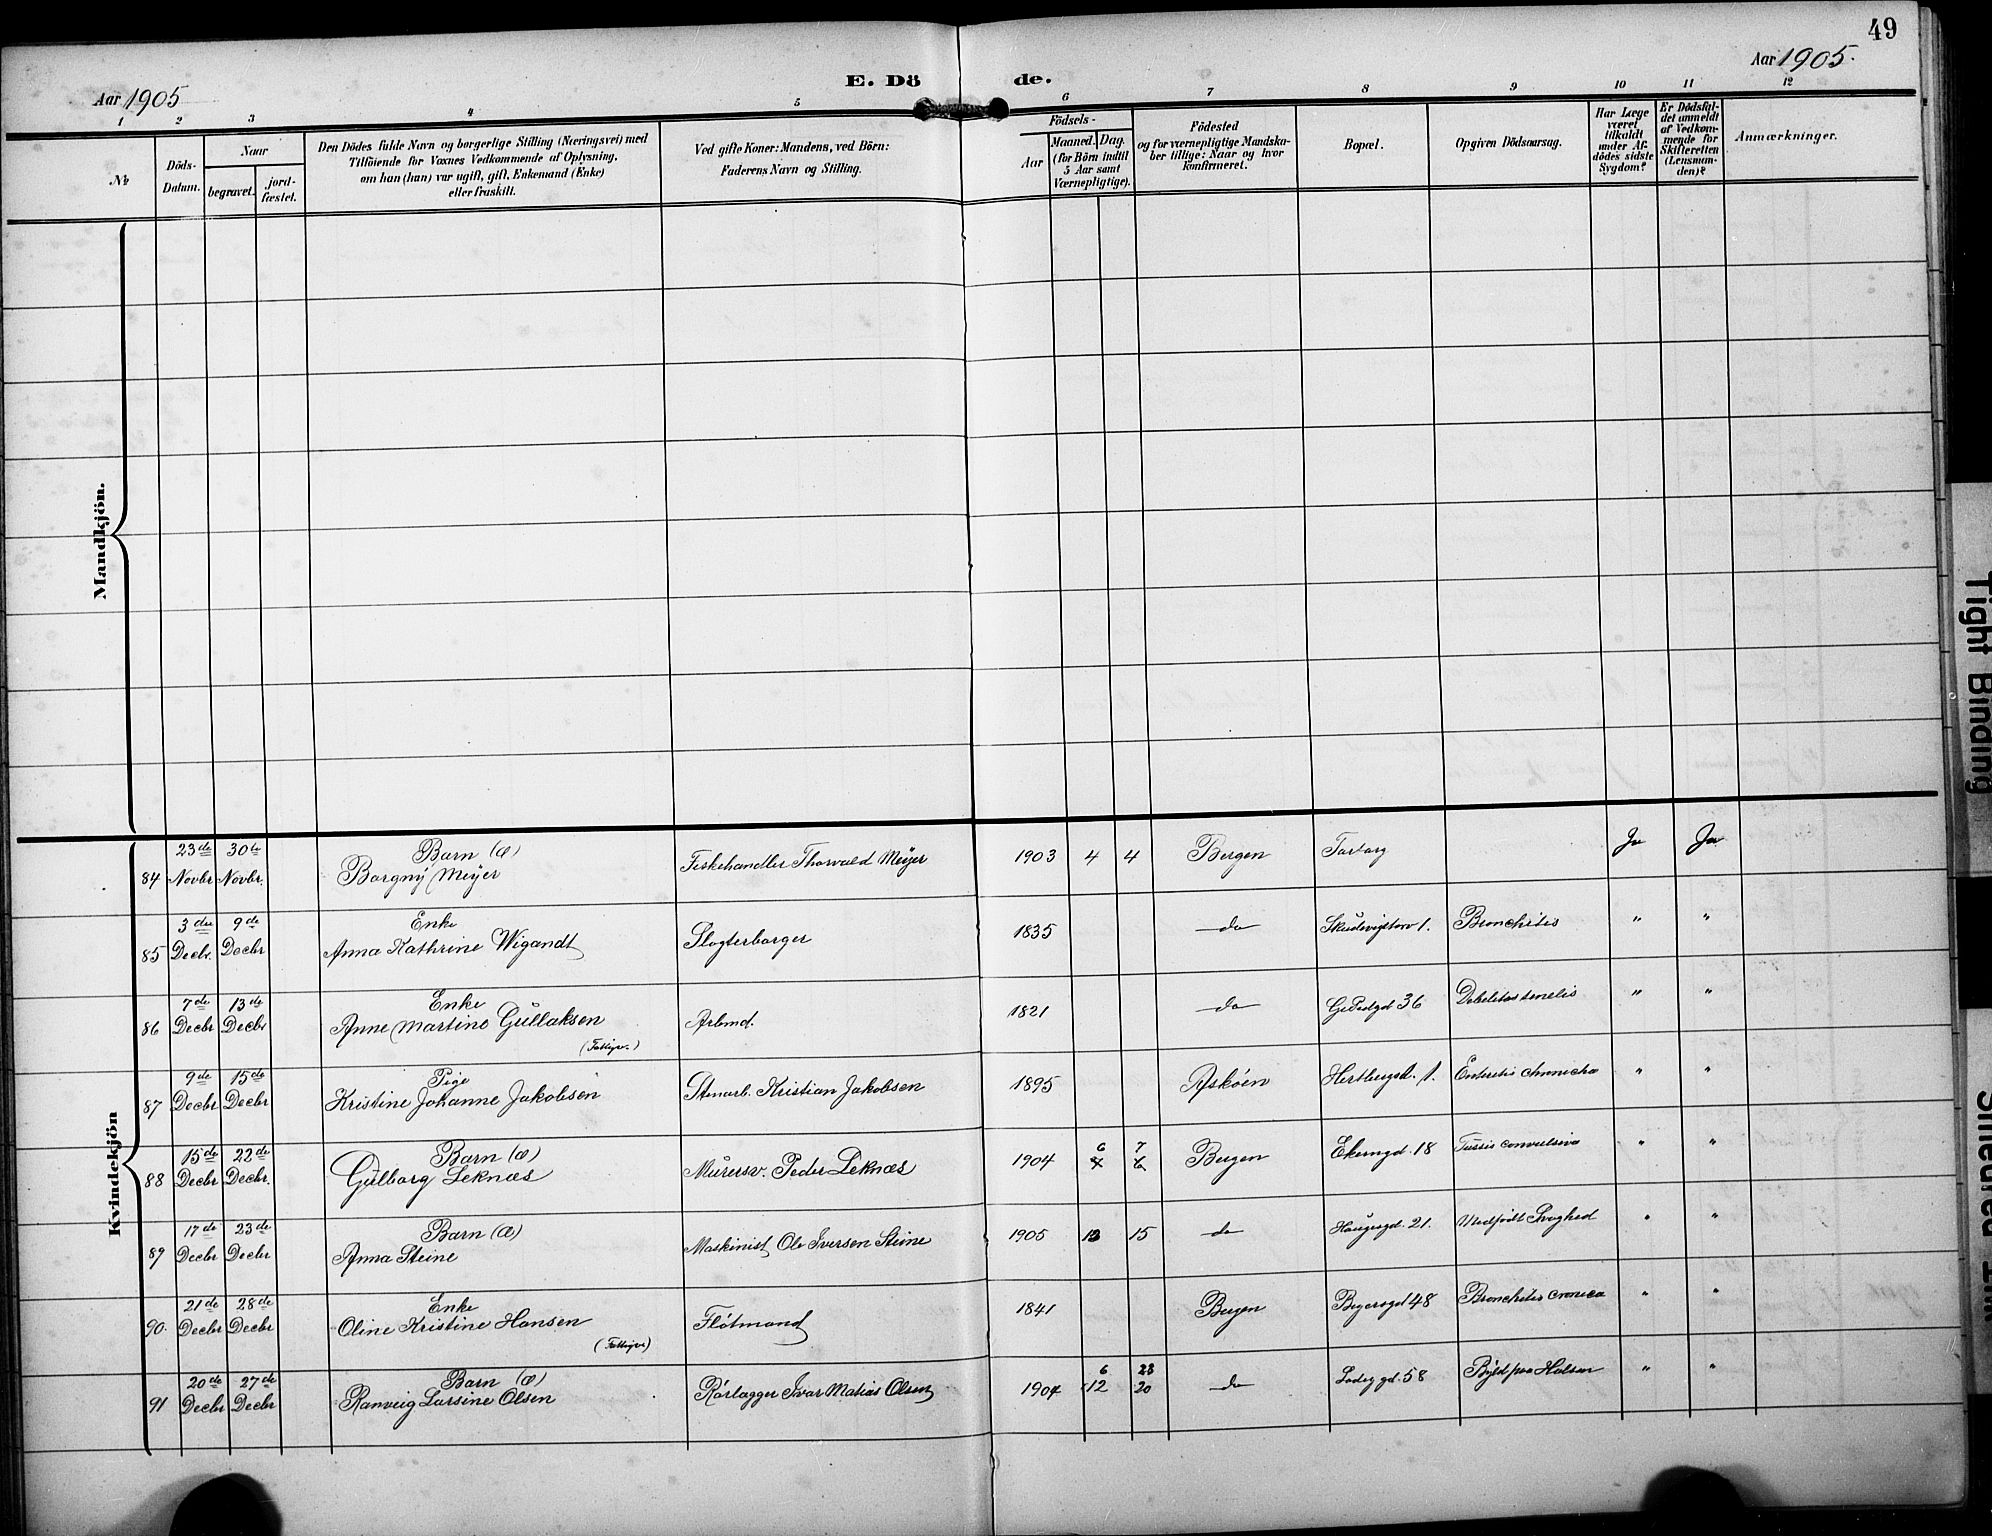 49
Aar 1905
E. Dö de.
Aar 1905.
1 2 3 4 5 6 7 8 9 10 11 12
No
Döds-Datum.
Naar
begravet.
jord-fæstet.
Den Dödes fulde Navn og borgerlige Stilling (Næringsvei) med
Tilföiende for Voxnes Vedkommende af Oplysning,
om han (hun) var ugift, gift, Enkemand (Enke)
eller fraskilt.
Ved gifte Koner: Mandens, ved Börn:
Faderens Navn og Stilling.
Födsels-
Aar
Maaned. Dag.
(for Börn indtil
5 Aar samt
Værnepligtige).
Födested
og for værnepligtige Mandska-
ber tillige: Naar og hvor
konfirmeret.
Bopæl.
Opgiven Dödsaarsag.
Har Læge
været
tilkaldt
under Af-
dödes sidste
Sygdom?
Er Dödsfal-
det anmeldt
af Vedkom-
mende for
Skifteretten
(Lensman-
den)?
Anmærkninger.
Mandkjön.
Kvindekjön
84 23de Novbr 30te Novbr. Barn (æ) Borgny Meyer Fiskehandler Thorvald Meyer 1903 4 4 Bergen Ja Ja
85 3die Decbr. 9de Decbr Enke Anna Kathrine Wigandt Slagterborger 1835 do Skudevigtorv 1. Bronchitis " "
86 7de Decbr 13de Decbr Enke Anne Martine Gullaksen Arbmd. 1821 do 36 " "
(Fattigv.)
87 9de Decbr 15de Decbr Pige Kristine Johanne Jakobsen Stenarb. Kristian Jakobsen 1895 Askøen 1. Enteritis chronicha " "
88 15de Decbr 22de Decbr. Barn (æ) Gulborg Leknæs Murersv. Peder Leknæs 1904 6 7 Bergen Ekerngd. 18 Tussis convulsiva " "
89 17de Decbr 23de Decbr Barn (æ) Anna Steine Maskinist Ole Iversen Steine 1905 15 do Haugegd. 21. Medfödt Svaghed " "
90. 21de Decbr 28de Decbr Enke Oline Kristine Hansen Flötmand 1841 Bergen 48 Bronchitis cronica " "
(Fattigv)
91 20de Decbr 27de Decbr Barn (æ) Ranveig Larsine Olsen Rörlægger Ivar Matias Olsen 1904 6 12 23 20 do 58 Byld paa Halsen " "
Tight Binding
Smeared Ink